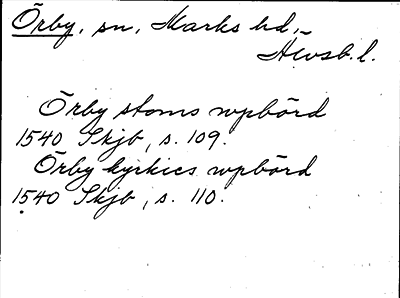 Örby, sn, Marks hd,
Älvsb. l.
Örby stoms uppbörd
1540 Skjb, s. 109.
Örby kyrkies uppbörd
1540 Skjb, s. 110.